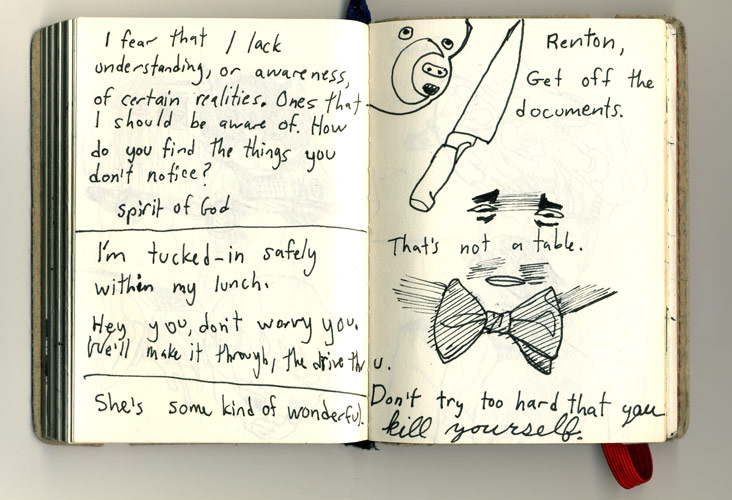 I fear that I lack
understanding, or awareness,
of certain realities. Ones that
I should be aware of. How
do you find the things you
don't notice?
spirit of God
I'm tucked-in safely
within my lunch.
Hey you, don't worry you.
We'll make it through, the drive thru.
She's some kind of wonderful.
Renton,
Get off the
documents.
That's not a table.
Don't try too hard that you
kill yourself.